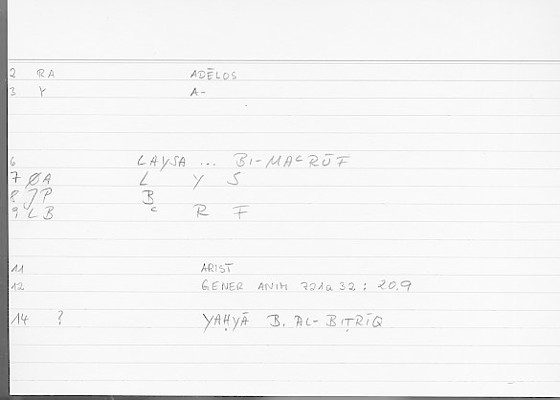 2 RA ADĒLOS
3 Y A-
6 LAYSA ... BI-MAʿRŪF
7 ØA L Y S
8 JP B
9 LB ʿ R F
11 ARIST
12 GENER ANIM 721a32 : 20.9
14 ? YAḤYĀ B. AL-BIṬRĪQ